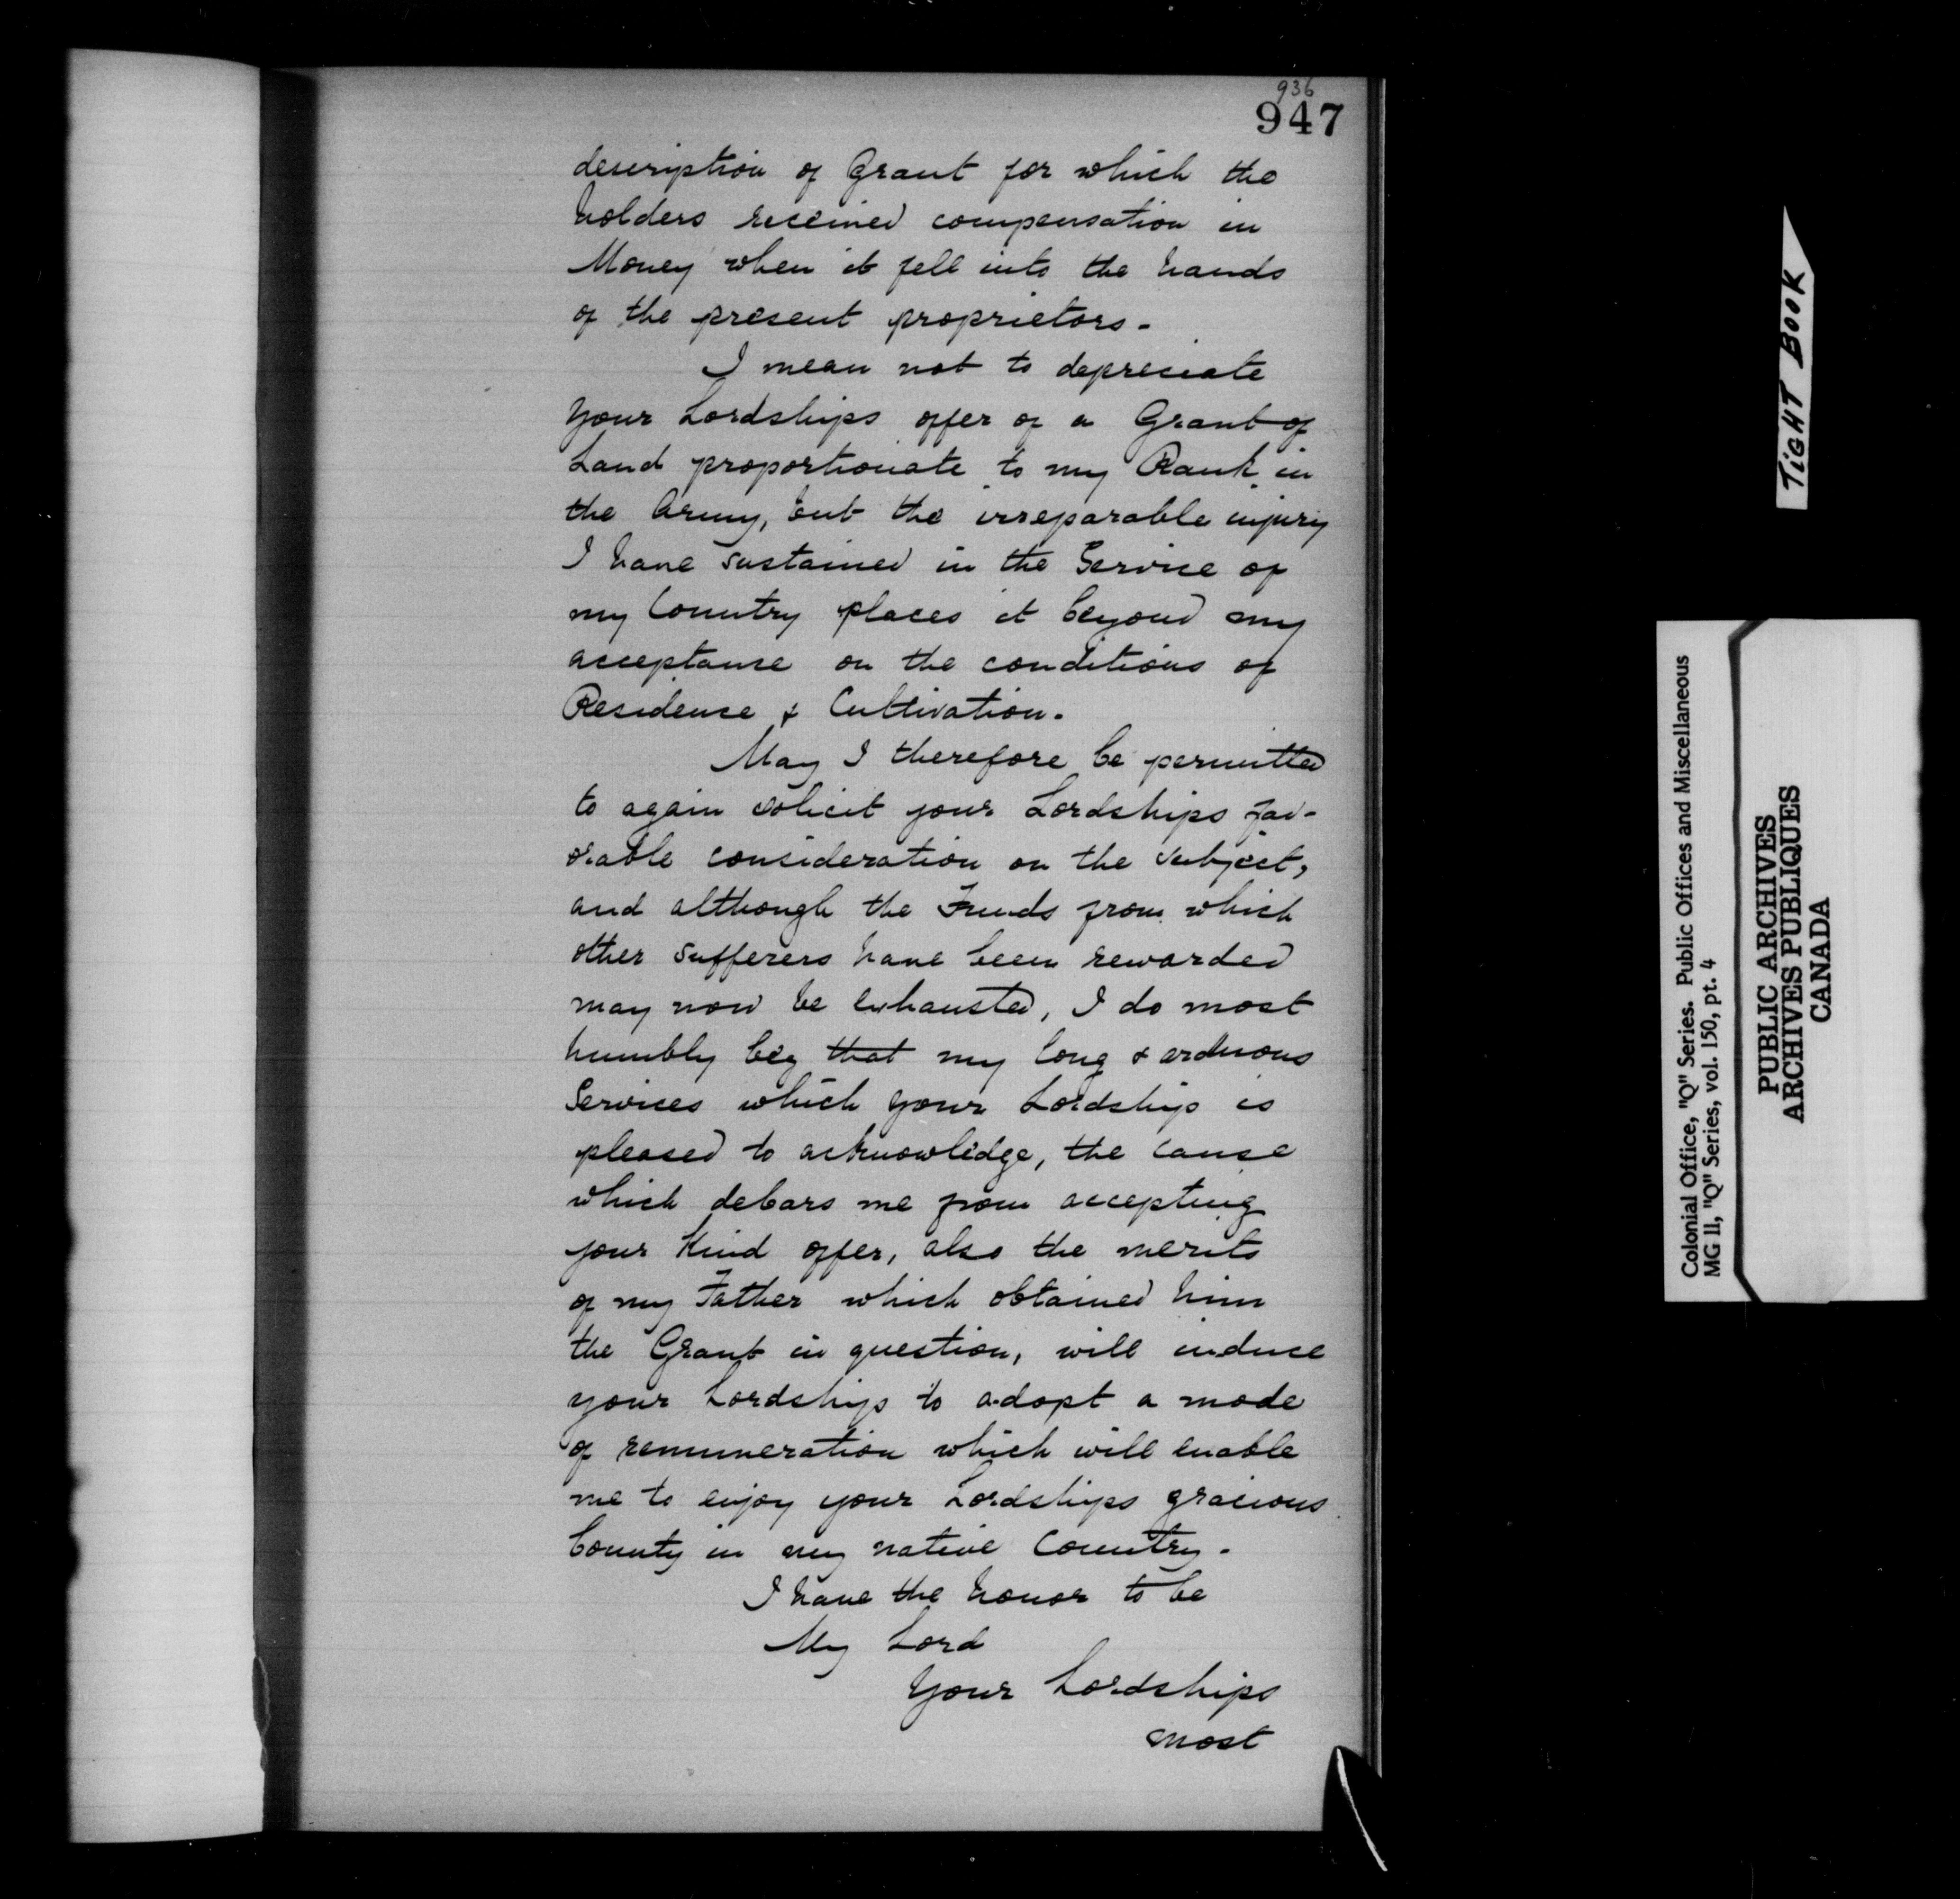 936
947
description of Grant for which the
holders received compensation in
Money when it fell into the hands
of the present proprietors.
I mean not to depreciate
Your Lordships offer of a Grant of
Land proportionate to my Rank in
the Army, but the irreparable injury
I have sustained in the Service of
my Country places it beyond my
acceptance on the conditions of
Residence & Cultivation.
May I therefore be permitted
to again solicit your Lordships fav-
orable consideration on the subject,
and although the Funds from which
other sufferers have been rewarded
may now be exhausted, I do most
humbly beg that my long & arduous
Services which your Lordship is
pleased to acknowledge, the cause
which debars me from accepting
your kind offer, also the merits
of my Father which obtained him
the Grant in question, will induce
your Lordship to adopt a mode
of remuneration which will enable
me to enjoy your Lordships gracious
bounty in my native Country.
I have the honor to be
My Lord
Your Lordships
most
TIGHT BOOK
Colonial Office, "Q" Series. Public Offices and Miscellaneous
MG 11, "Q" Series, vol. 150, pt. 4
PUBLIC ARCHIVES
ARCHIVES PUBLIQUES
CANADA